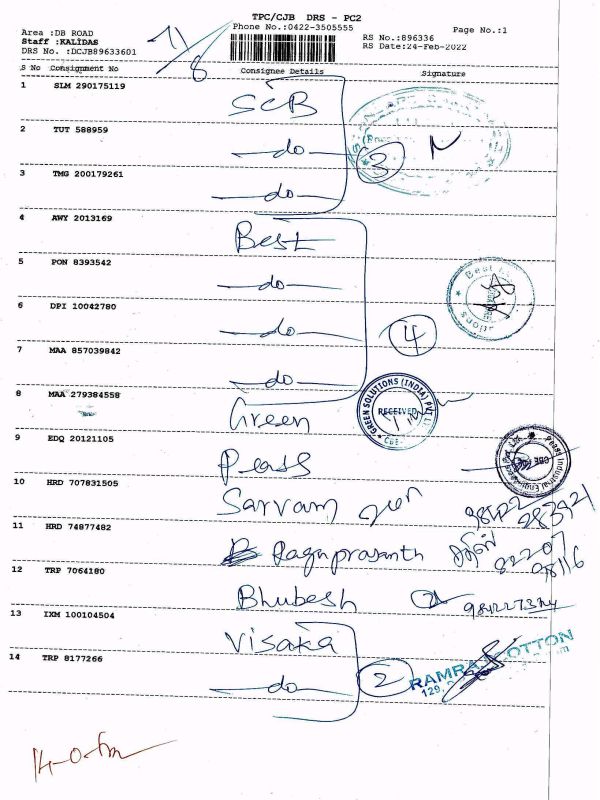 TPC/CJB DRS - PC2
Phone No.:0422-3505555
Page No.:1
Area :DB ROAD
Staff :KALIDAS
DRS No. :DCJB89633601
RS No.:896336
RS Date:24-Feb-2022
S No Consignment No Consignee Details Signature
1 SLM 290175119 SCB
2 TUT 588959 —do—
3 TMG 200179261 —do—
3
4 AWY 2013169 Best
5 PON 8393542 —do—
6 DPI 10042780 —do—
4
7 MAA 857039842 —do—
8 MAA 279384558 Green
GREEN SOLUTIONS (INDIA) PVT LTD
RECEIVED
CBE
9 EDQ 20121105
10 HRD 707831505 Sarvam
11 HRD 74877482 Ragu prasanth
12 TRP 7064180 Bhubesh
13 IXM 100104504 Visaka
14 TRP 8177266 —do—
2
COTTON
129,